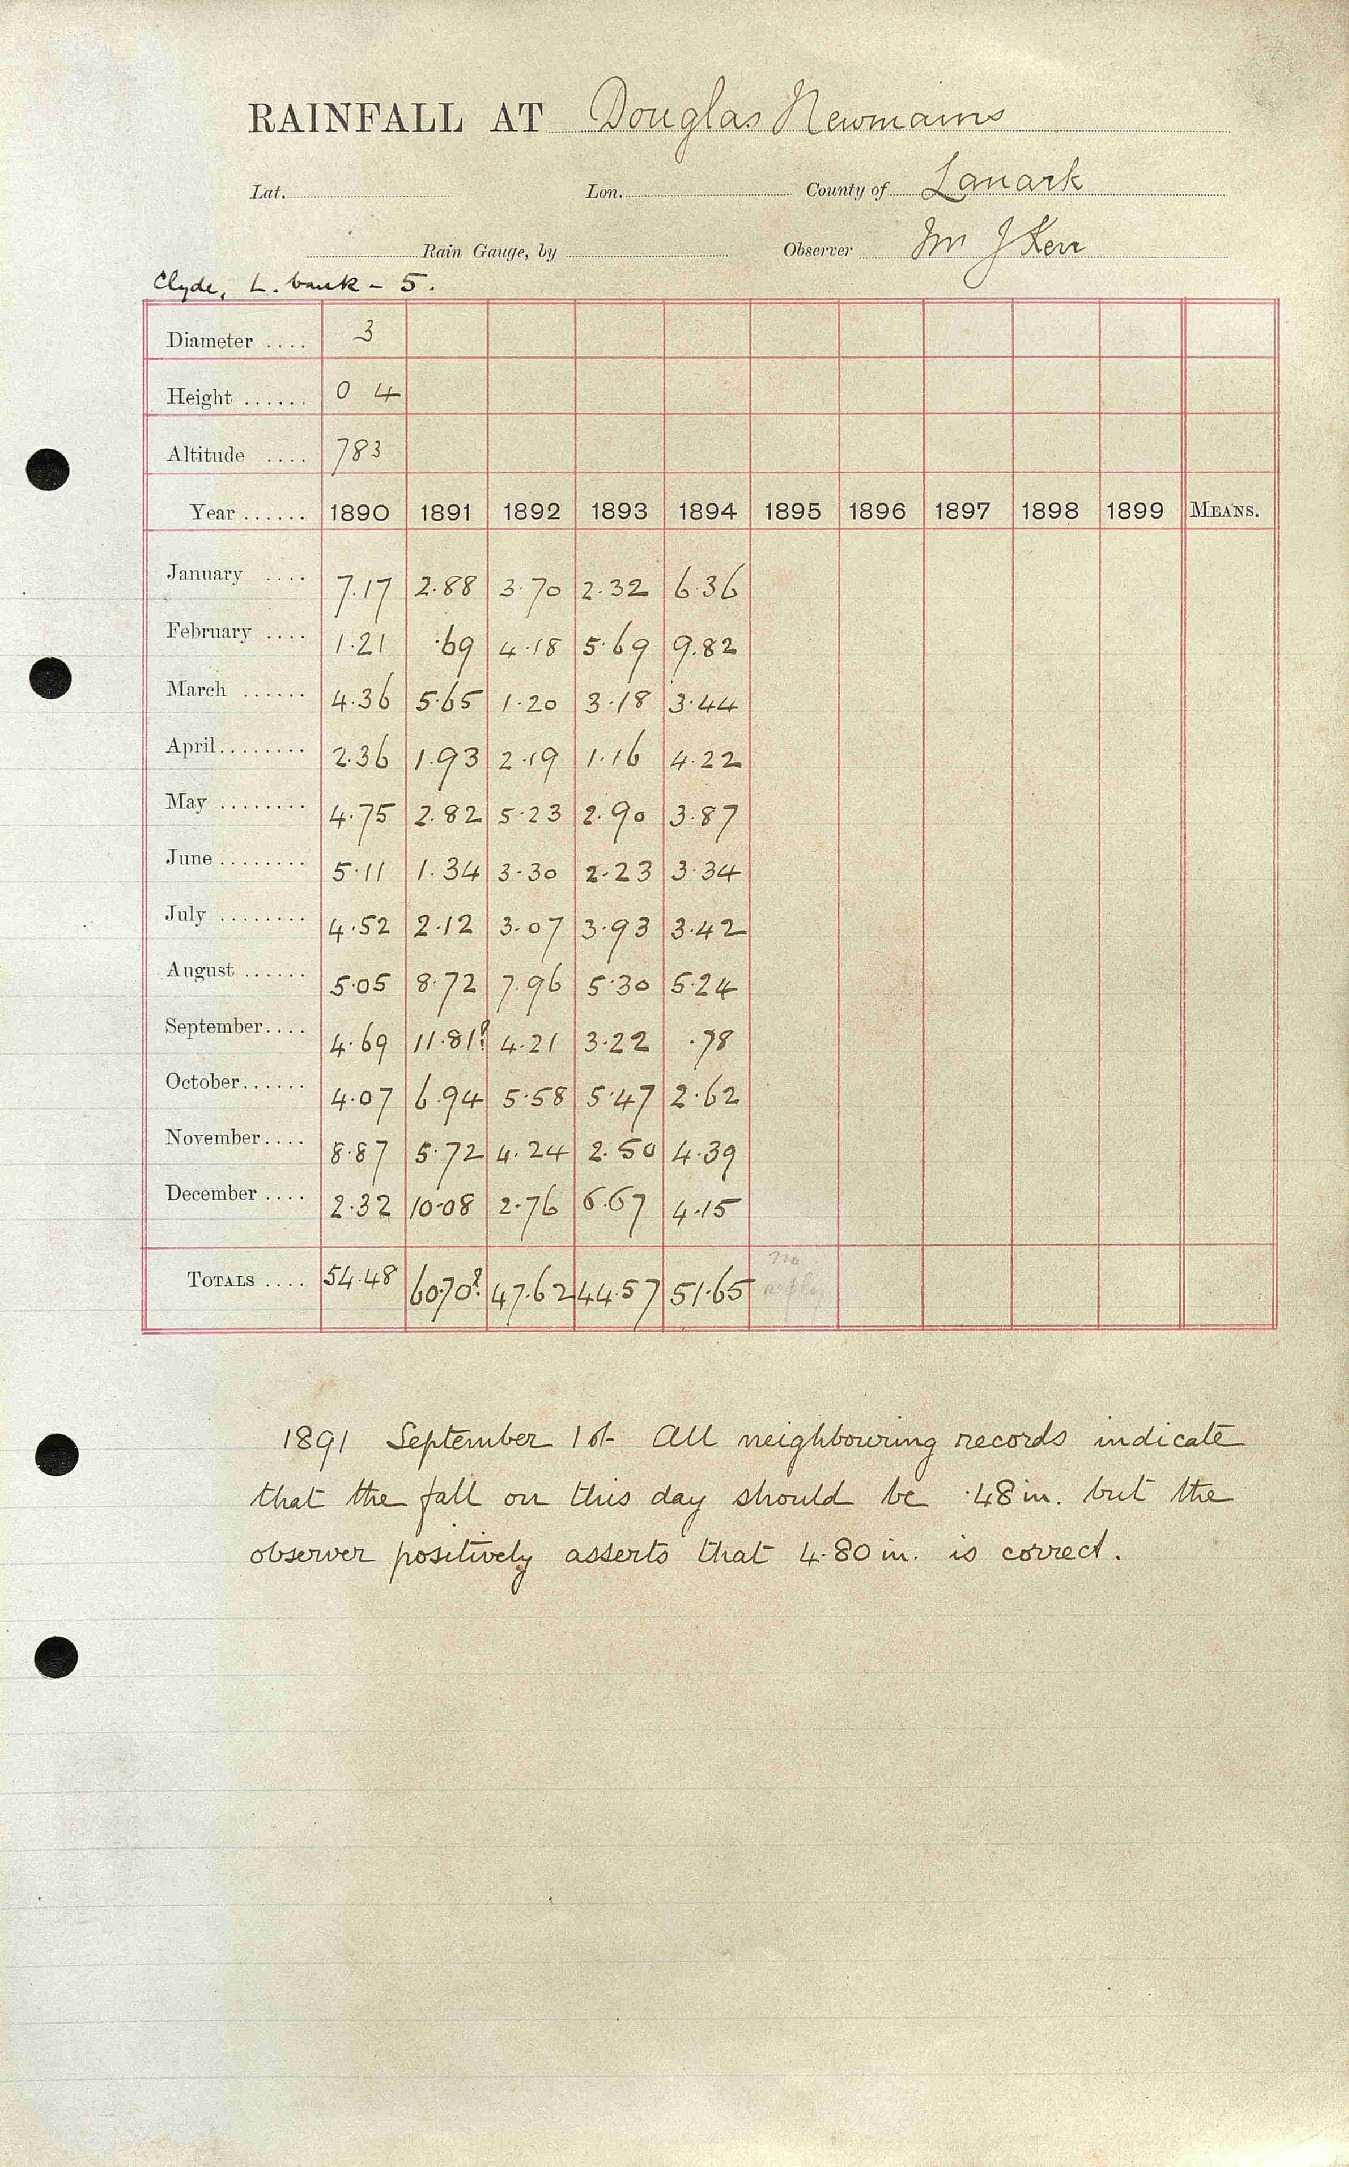 RAINFALL AT Douglas Newmains
Lat. Lon. County of Lanark
Rain Gauge, by Observer Mr J Kerr
Clyde, L. bank - 5.
Diameter .... 3
Height ...... 0 4
Altitude .... 783
Year ...... 1890 1891 1892 1893 1894 1895 1896 1897 1898 1899 MEANS.
January .... 7.17 2.88 3.70 2.32 6.36
February .... 1.21 .69 4.18 5.69 9.82
March ...... 4.36 5.65 1.20 3.18 3.44
April ........ 2.36 1.93 2.19 1.16 4.22
May ........ 4.75 2.82 5.23 2.90 3.87
June ........ 5.11 1.34 3.30 2.23 3.34
July ........ 4.52 2.12 3.07 3.93 3.42
August ...... 5.05 8.72 7.96 5.30 5.24
September.... 4.69 11.81? 4.21 3.22 .78
October...... 4.07 6.94 5.58 5.47 2.62
November.... 8.87 5.72 4.24 2.50 4.39
December .... 2.32 10.08 2.76 6.67 4.15
TOTALS .... 54.48 60.70? 47.62 44.57 51.65 no reply
1891 September 1st All neighbouring records indicate
that the fall on this day should be .48 in. but the
observer positively asserts that 4.80 in. is correct.